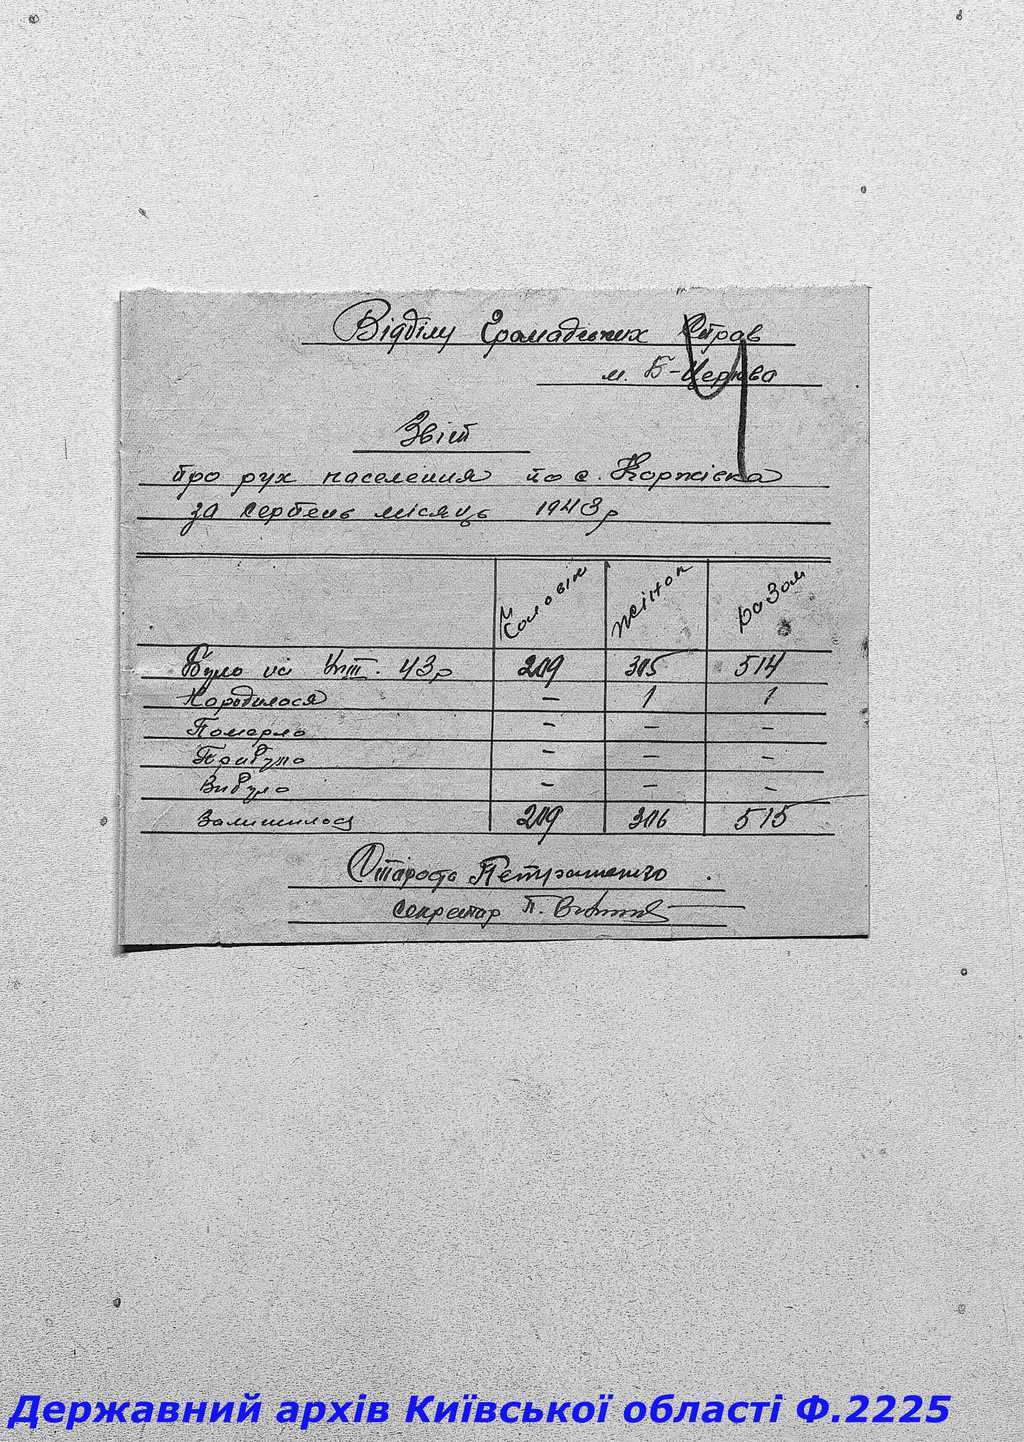 Відділу Громадських Справ
м. Б-Церква
Звіт
про рух населення по с. Коржівка
за серпень місяць 1943р
Чоловік Жінок Разом
Було на VIII. 43р 209 305 514
Народилося – 1 1
Померло – – –
Прибуло – – –
Вибуло – – –
Залишилось 209 306 515
Староста Петрашенко
Секретар П.
Державний архів Київської області Ф.2225